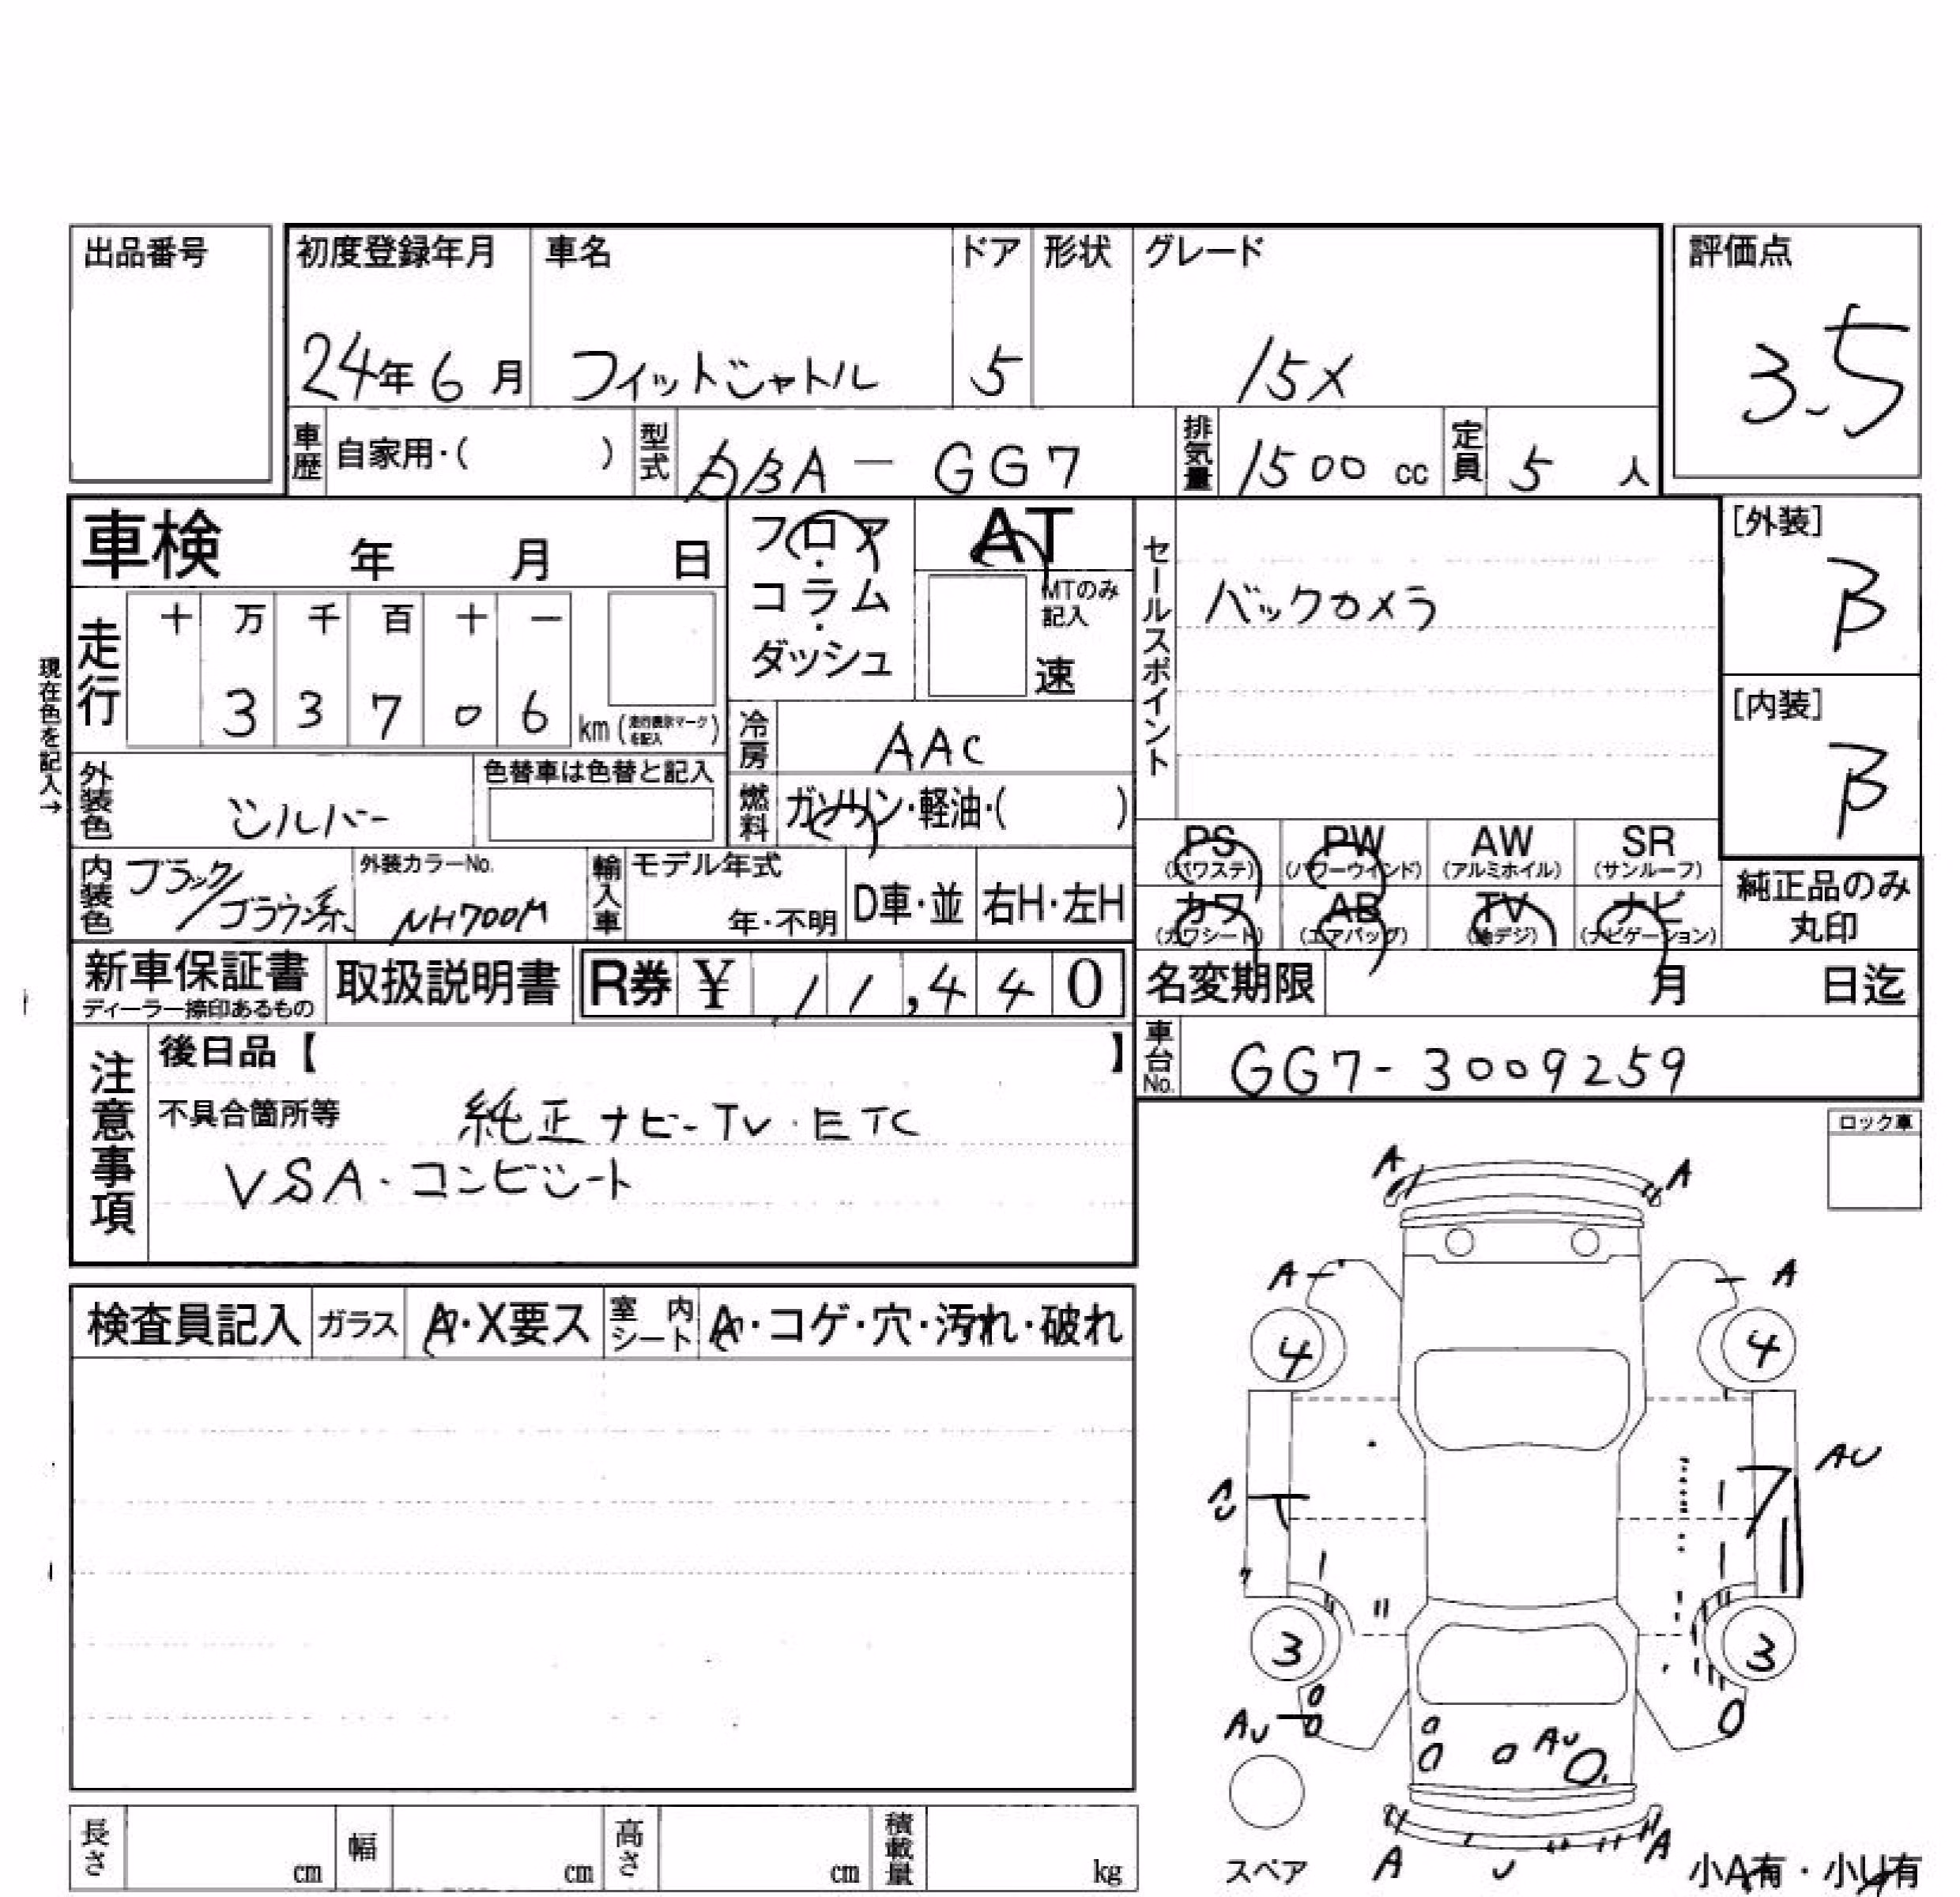 出品番号
初度登録年月 車名 ドア 形状 グレード 評価点
24年 6月 フィットシャトル 5 15X 3.5
車歴 自家用・( ) 型式 DBA - GG7 排気量 1500 cc 定員 5 人
車検 年 月 日
フロア・コラム・ダッシュ
AT
MTのみ記入
速
セールスポイント
バックカメラ
[外装]
B
[内装]
B
現在色を記入→
走行 十 万 千 百 十 一
3 3 7 0 6 km (走行表示マークを記入)
冷房 AAC
燃料 ガソリン・軽油・( )
外装色 シルバー 色替車は色替と記入
内装色 ブラック/ブラウン系 外装カラーNo. NH700M
輸入車 モデル年式 年・不明 D車・並 右H・左H
PS (パワステ) PW (パワーウインド) AW (アルミホイル) SR (サンルーフ)
カワ (カワシート) AB (エアバッグ) TV (地デジ) ナビ (ナビゲーション)
純正品のみ丸印
新車保証書 ディーラー捺印あるもの 取扱説明書 R券 ¥ 11,440
名変期限 月 日迄
車台No. GG7-3009259
注意事項
後日品【 】
不具合箇所等 純正ナビ-TV・ETC
VSA・コンビシート
ロック車
検査員記入 ガラス A・X要ス 室内シート A・コゲ・穴・汚れ・破れ
A A
A A
4 4
AU
3 3
AU AU
A U A
スペア 小A有・小U有
長さ cm 幅 cm 高さ cm 積載量 kg